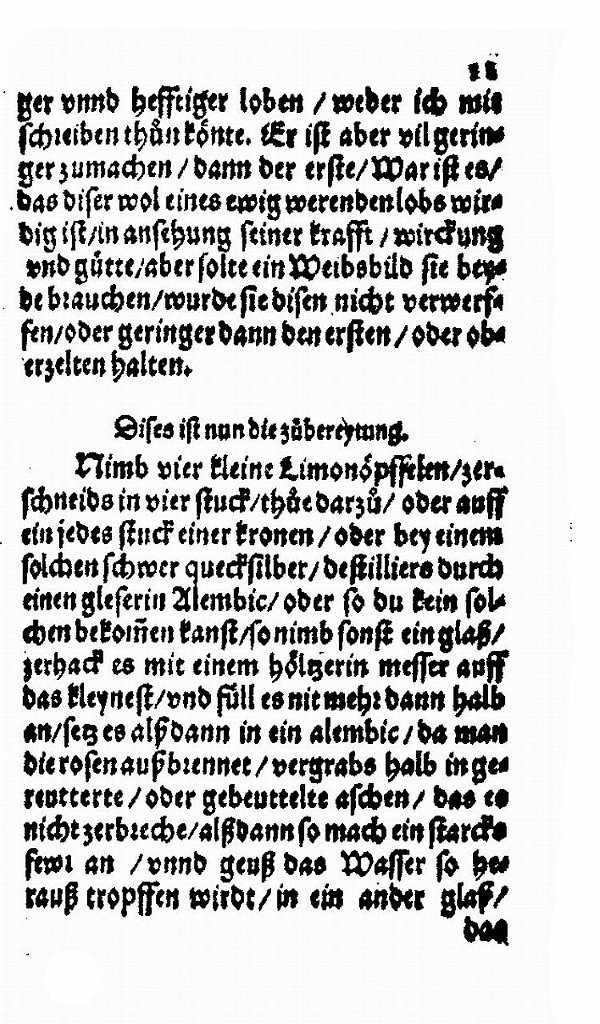 11
ger vnnd hefftiger loben / weder ich mit
schreiben thůn könte. Er ist aber vil gerin⸗
ger zumachen / dann der erste / War ist es /
das diser wol eines ewig werenden lobs wir⸗
dig ist / in ansehung seiner krafft / wirckung
vnd gůtte / aber solte ein Weibsbild sie bey⸗
de brauchen / wurde sie disen nicht verwerf⸗
fen / oder geringer dann den ersten / oder ob⸗
erzelten halten.
Dises ist nun die zůbereytung.
Nimb vier kleine Limonöpffelen / zer⸗
schneids in vier stuck / thůe darzů / oder auff
ein jedes stuck einer kronen / oder bey einem
solchen schwer quecksilber / destilliers durch
einen gleserin Alembic / oder so du kein sol⸗
chen bekom̃en kanst / so nimb sonst ein glaß /
zerhack es mit einem höltzerin messer auff
das kleynest / vnd füll es nit mehr dann halb
an / setz es alßdann in ein alembic / da man
die rosen außbrennet / vergrabs halb in ge⸗
reutterte / oder gebeuttelte aschen / das es
nicht zerbreche / alßdann so mach ein starcks
fewr an / vnnd geuß das Wasser so he⸗
rauß tropffen wirdt / in ein ander glaß /
das